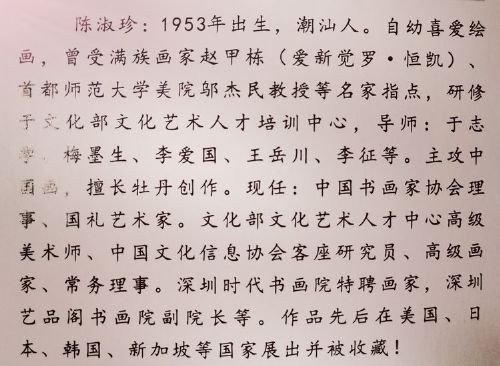 陈淑珍：1953年出生，潮汕人。自幼喜爱绘
画，曾受满族画家赵甲栋（爱新觉罗·恒凯）、
首都师范大学美院邬杰民教授等名家指点，研修
于文化部文化艺术人才培训中心，导师：于志
学、梅墨生、李爱国、王岳川、李征等。主攻中
国画，擅长牡丹创作。现任：中国书画家协会理
事、国礼艺术家。文化部文化艺术人才中心高级
美术师、中国文化信息协会客座研究员、高级画
家、常务理事。深圳时代书画院特聘画家，深圳
艺品阁书画院副院长等。作品先后在美国、日
本、韩国、新加坡等国家展出并被收藏！